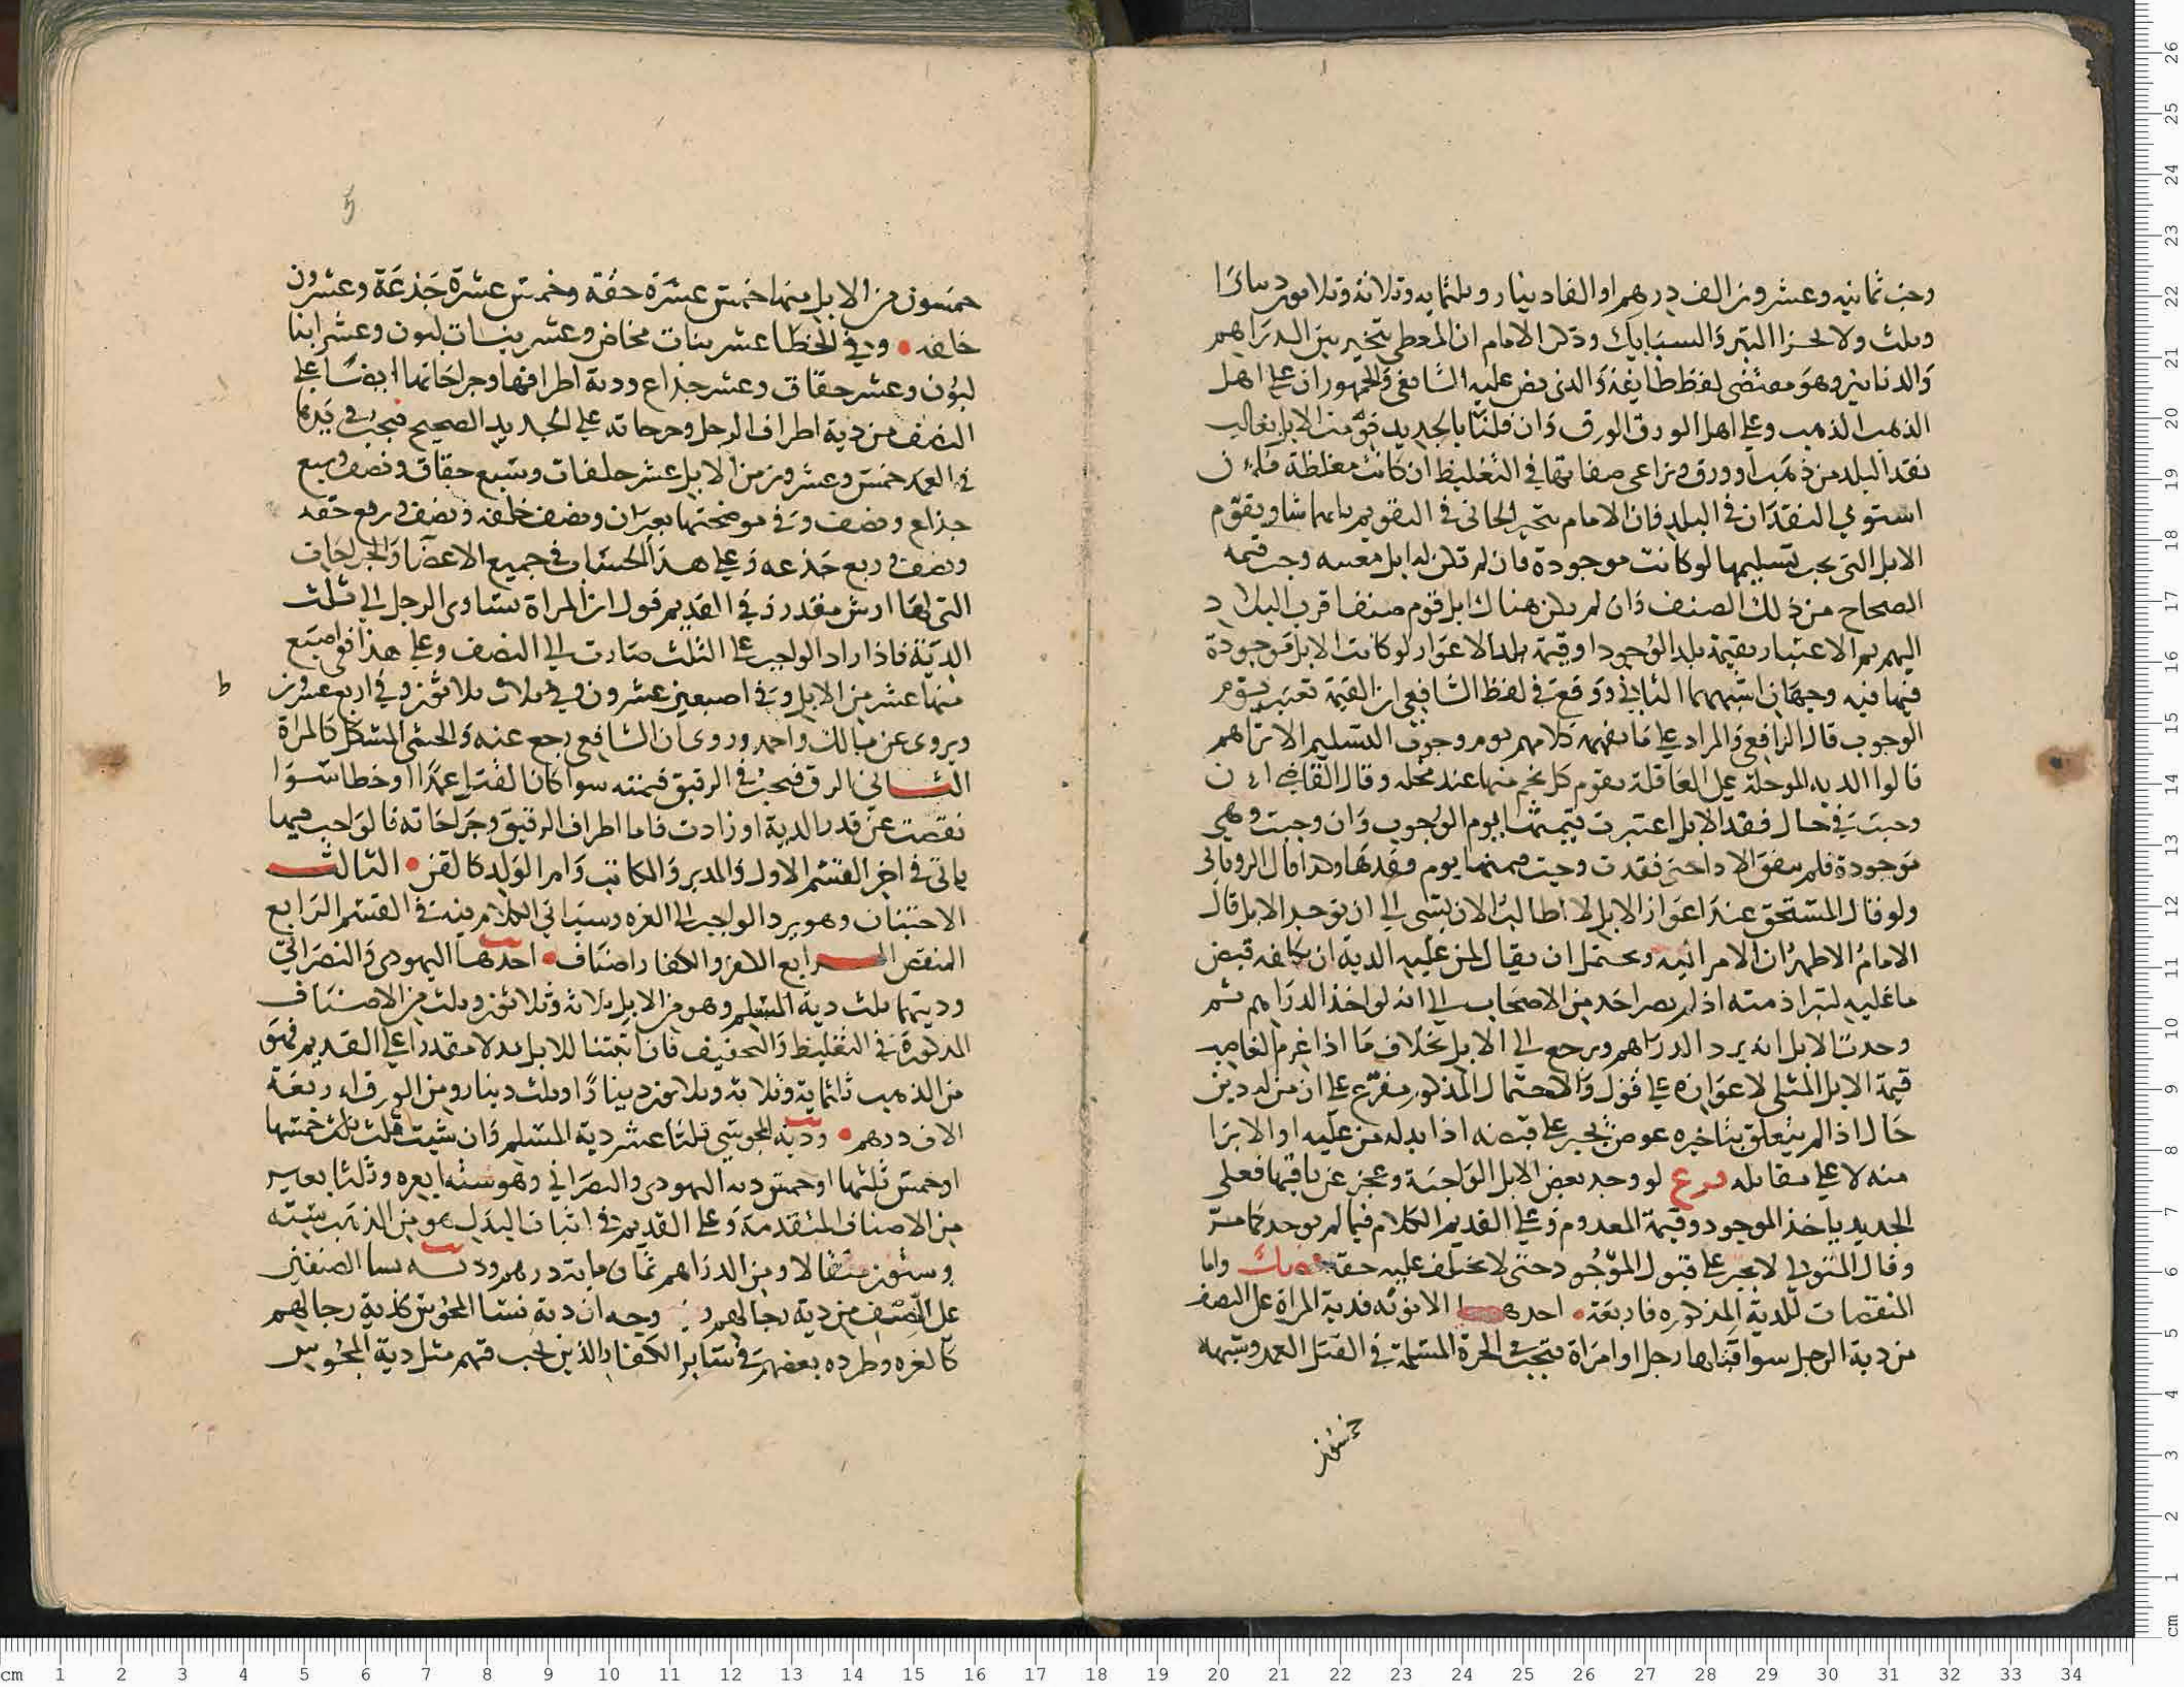 وجب ثمانيه وعشرون الف درهم او الفا دينار وثلثمايه وثلاثة وثلاثون دينارا
وثلث ولا يجزا التبر والسبايك وذكر الامام ان المعطي يتخير بين الدراهم
والدنانير وهو مقتضى لفظ طايفة والذي نص عليه الشافعي والجمهور ان على اهل
الذهب الذهب وعلى اهل الورق الورق وان قلنا بالجديد قومت الابل بغالب
نقد البلد من ذهب او ورق وتراعى صفاتها في التغليظ ان كانت مغلظة فان
استوى النقدان في البلد فان الامام يتخير الجاني في التقويم بايهما شا ويقوم
الابل التي يجب تسليمها لو كانت موجودة فان لم تكن له ابل معيبه وجب قيمه
الصحاح من ذلك الصنف وان لم يكن هناك ابل قوم صنفا قرب البلاد
اليهم ثم الاعتبار بقيمة بلد الوجود او قيمة بلد الاعواز لو كانت الابل موجودة
فيها فيه وجهان اشبههما الثاني ووقع في لفظ الشافعي ان القيمة تعتبر بيوم
الوجوب قال الرافعي والمراد على ما يفهمه كلامهم يوم وجوب التسليم الا تراهم
قالوا الديه الموجلة على العاقلة يقوم كل نجم منها عند محله وقال القاضي ان
وجبت في حال فقد الابل اعتبرت قيمتها يوم الوجوب وان وجبت وهي
موجودة فلم يتفق الادا حتى فقدت وجبت قيمتها يوم فقدها وكذا قال الروياني
ولو قال المستحق عند اعواز الابل لا اطالب الان بشى الى ان توجد الابل قال
الامام الاظهر ان الامر اليه ويحتمل ان يقال لمن عليه الدية ان يكلفه قبض
ما عليه لتبرا ذمته اذ لم يصر احد من الاصحاب الى انه لو اخذ الدراهم ثم
وجدت الابل انه يرد الدراهم ويرجع الى الابل بخلاف ما اذا غرم الغاصب
قيمة الابل المثلى لاعوازه على قول والاحتمال المذكور مفرع على ان من له دين
حال اذا لم يتعلق بتاخيره عوض يجبر على قبضه اذا بدله من عليه او الابرا
منه لا على مقابله فرع لو وجد بعض الابل الواجبة وعجز عن باقيها فعلى
الجديد ياخذ الموجود وقيمة المعدوم وعلى القديم الكلام فيما لم يوجد كما مر
وقال المتولي لا يجبر على قبول الموجود حتى لا يختلف عليه حقه واما
المنقصات للدية المذكوره فاربعة احدها الانوثه فدية المراة على النصف
من دية الرجل سوا قتلها رجل او امراة فتجب الحرة المسلمة في القتل العمد وشبهه
خمسون
5
خمسون من الابل منها خمس عشرة حقة وخمس عشرة جذعة وعشرون
خلفه وفي الخطا عشر بنات مخاض وعشر بنات لبون وعشر ابنا
لبون وعشر حقاق وعشر جذاع ودية اطرافها وجراحاتها ايضا على
النصف من دية اطراف الرجل وجرحاته على الجديد الصحيح فيجب في يدها
في العمد خمس وعشرون من الابل عشر خلفات وسبع حقاق ونصف وسبع
جذاع ونصف وفي موضحتها بعيران ونصف خلفه ونصف وربع حقه
ونصف وربع جذعه وعلى هذا الحساب في جميع الاعضا والجراحات
التي لها ارش مقدر وفي القديم قول ان المراة تساوي الرجل الى ثلث
الدية فاذا زاد الواجب على الثلث صارت الى النصف وعلى هذا ففي اصبع
منها عشر من الابل وفي اصبعين عشرون وفي ثلاث ثلاثون وفي اربع عشرون
ط
ويروى عن مالك واحمد وروى ان الشافعي رجع عنه والخنثى المشكل كالمراة
الثاني الرق فيجب في الرقيق قيمته سوا كان القتل عمدا او خطا سوا
نقصت عن قدر الدية او زادت فاما اطراف الرقيق وجراحاته فالواجب فيها
ياتي في اخر القسم الاول والمدبر والمكاتب وام الولد كالقن الثالث
الاجتنان وهو يرد الواجب الى الغره وسياتي الكلام فيه في القسم الرابع
المنقص الرابع الكفر والكفار اصناف احدها اليهودي والنصراني
وديتهما ثلث دية المسلم وهو من الابل ثلاثة وثلاثون وثلث من الاصناف
المذكورة في التغليظ والتخفيف فان اثبتنا للابل بدلا مقدرا على القديم فهو
من الذهب ثلثماية وثلاثه وثلاثون دينارا وثلث دينار ومن الورق اربعة
الاف درهم ودية المجوسي ثلثا عشر دية المسلم وان شيت قلت ثلث خمسها
او خمس ثلثها او خمس دية اليهودي والنصراني وهو ستة ابعره وثلثا بعير
من الاصناف المتقدمة وعلى القديم في اثبات البدل هو من الذهب ستة
وستون مثقالا ومن الدراهم ثمان ماية درهم ودية نسا الصنفين
على النصف من دية رجالهم وجه ان دية نسا المجوس كدية رجالهم
كالغره وطرده بعضهم في ساير الكفار والذين تجب فيهم مثل دية المجوس